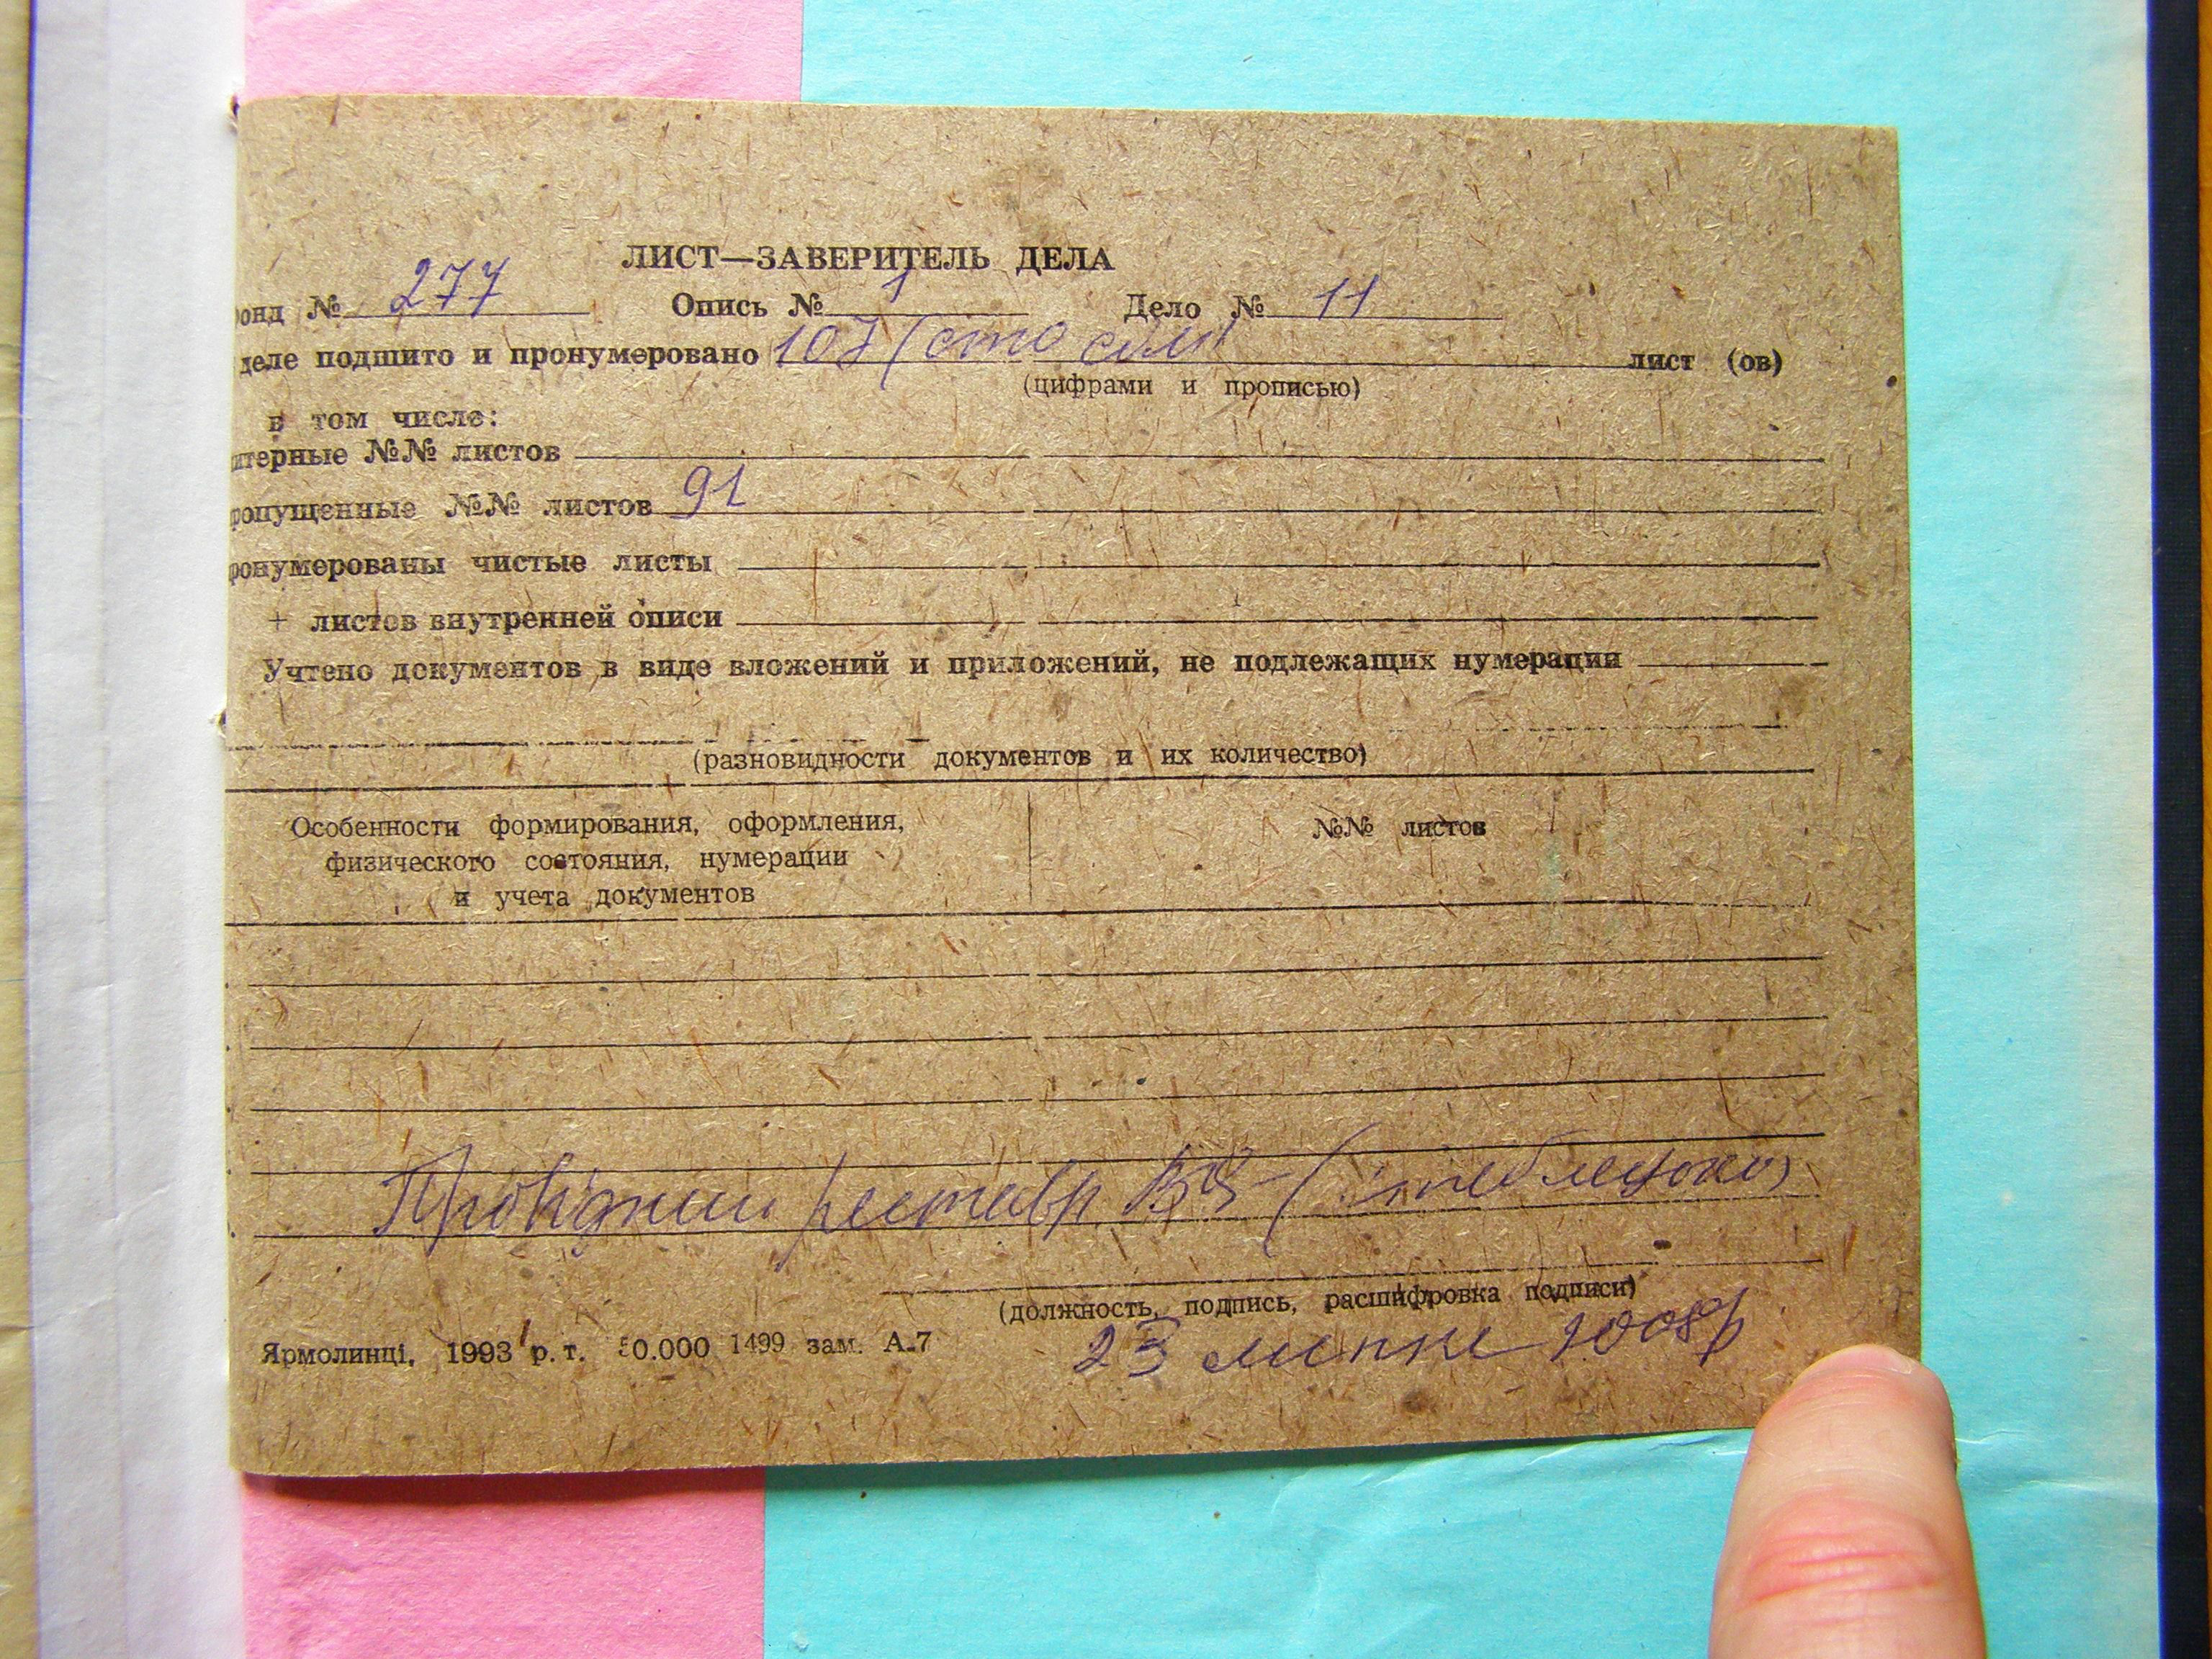 ЛИСТ—ЗАВЕРИТЕЛЬ ДЕЛА
онд № 277 Опись № 1 Дело № 11
деле подшито и пронумеровано 107 (сто сім) лист (ов)
(цифрами и прописью)
в том числе:
итерные №№ листов
ропущенные №№ листов 91
ронумерованы чистые листы
+ листов внутренней описи
Учтено документов в виде вложений и приложений, не подлежащих нумерации
(разновидности документов и их количество)
Особенности формирования, оформления, №№ листов
физического состояния, нумерации
и учета документов
Провідний реставр.
(должность, подпись, расшифровка подписи)
23 липня 2008р
Ярмолинці, 1993 р. т. 50.000 1499 зам. А-7